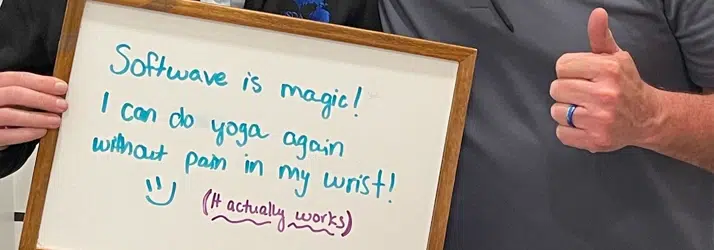 Softwave is magic!
I can do yoga again
without pain in my wrist!
(It actually works)